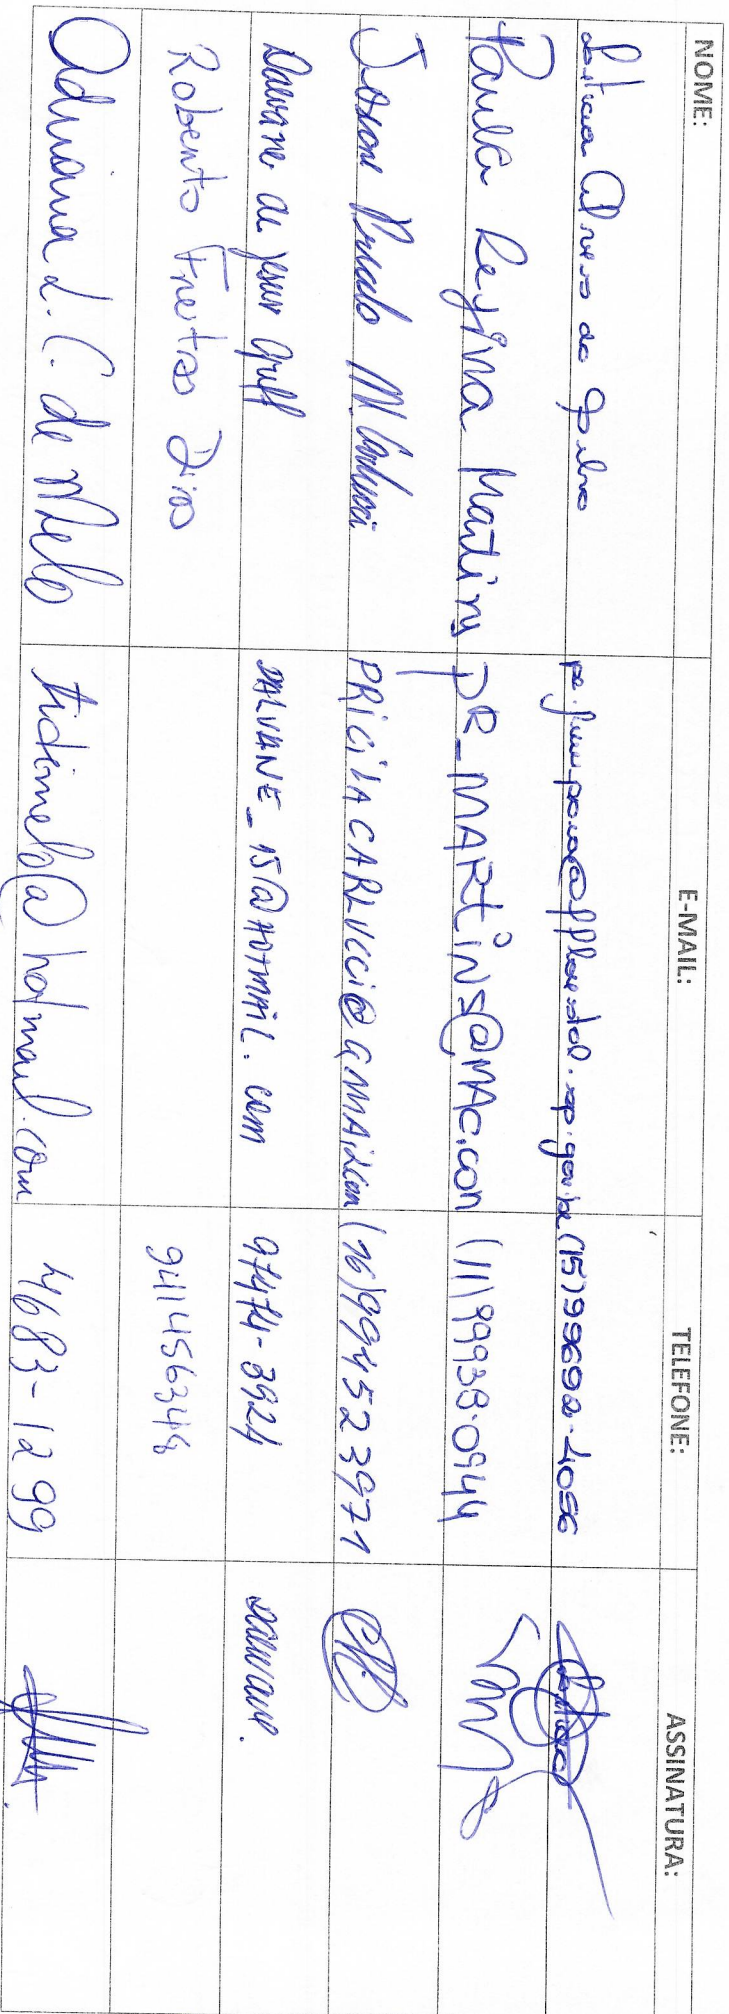 NOME: E-MAIL: TELEFONE: ASSINATURA:
Alves da Silva (15)99692-4056
Paula Regina Martins PR_MARtiNS@MAC.COM (11)99938-0944
M. Carlucci PRiCiLACARLUCCi@GMAiL.COM (16)994523971
Dalvane de Jesus DALVANE_15@HOTMAIL.com 97474-3924 Dalvane.
Roberto Freitas Dias 941456348
Adriana L. C. de Melo tidimelo@hotmail.com 4683-1299